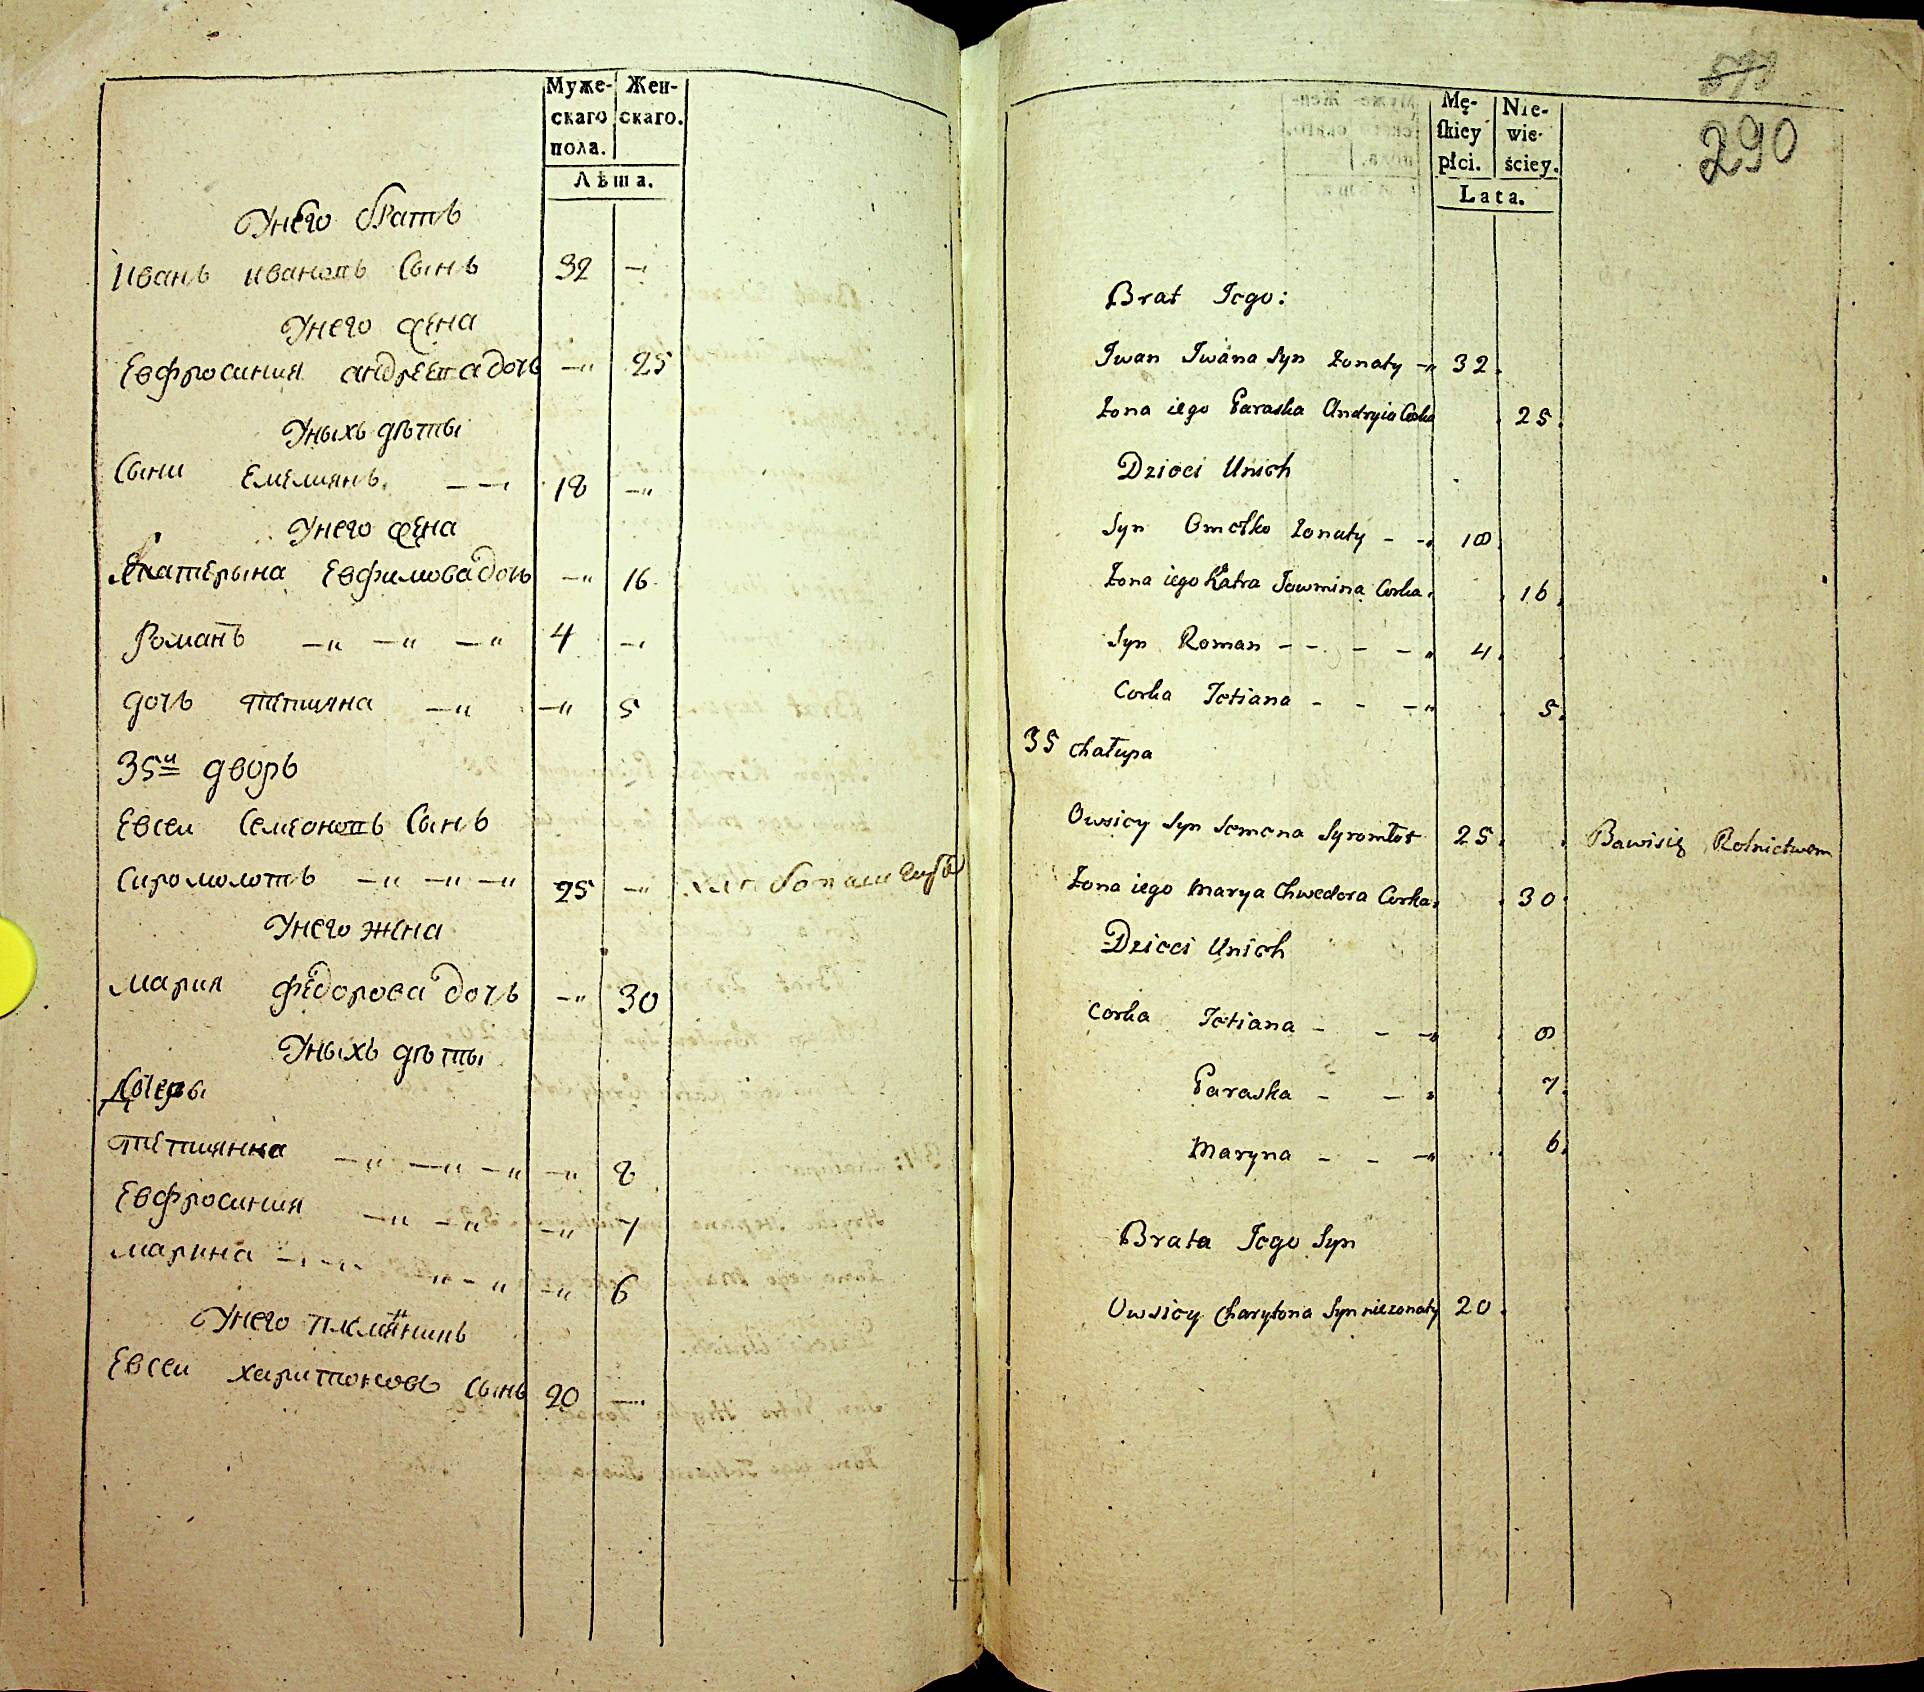 Муже-
скаго
пола.
Жен-
скаго.
Лѣта.
Унего братъ
Иванъ ивановъ Сынъ 32 —
Унего жена
Евфросиния андреева дочь —„ 25
Уныхъ дѣты
Сыни Емелиянъ. — — 18 —„
Унего жена
Екатерына Евфимова дочь —„ 16
Романъ —„ —„ —„ 4 —
дочь тетияна —„ —„ 5
35й дворъ
Евсеи Семеоновъ Сынъ
Сиромолотъ —„ —„ —„ 25 —„
Унего жена
мариа федорова дочь —„ 30
Уныхъ дѣты
Дочеры
тетиянна —„ —„ —„ —„ 8
Евфросиния —„ —„ —„ 7
марина —„ 6
Унего племянникъ
Евсеи харитоновъ Сынъ 20 —
290
Mę-
skiey
płci.
Nie-
wie-
ściey.
Lata.
Brat Jego:
Iwan Iwana Syn żonaty —„ 32.
Żona iego Paraska Andryia Corka 25.
Dzieci Unich
Syn Omelko żonaty - -„ 18.
Żona iego Katra Jowmina Corka. 16.
Syn Roman - - - -„ 4.
Corka Tetiana - - -„ 5.
35 chałupa
Owsiey Syn Semena Syromłot 25. Bawisię Rolnictwem
Żona iego Marya Chwedora Corka. 30.
Dzieci Unich
Corka Tetiana - - -„ 8
Paraska - - „ 7.
Maryna - - -„ 6.
Brata Jego Syn
Owsiey Charytona Syn nieżonaty 20.